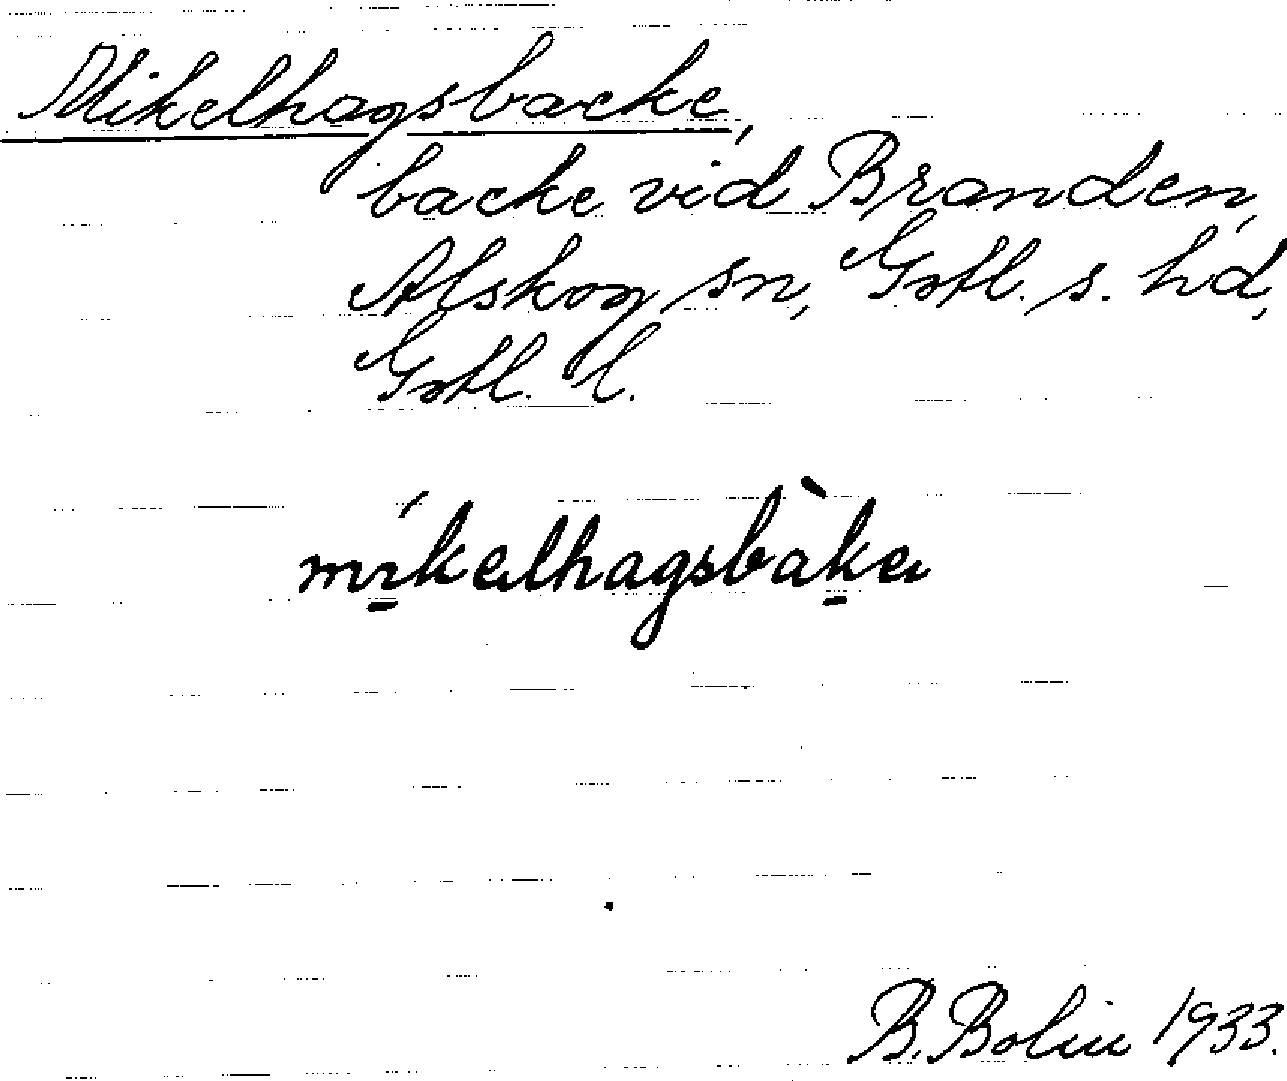 Mikelhagsbacke,
backe vid Branden,
Alskog sn, Gotl. s. hd,
Gotl. l.
mikelhagsbakeı
B. Bolin 1933.